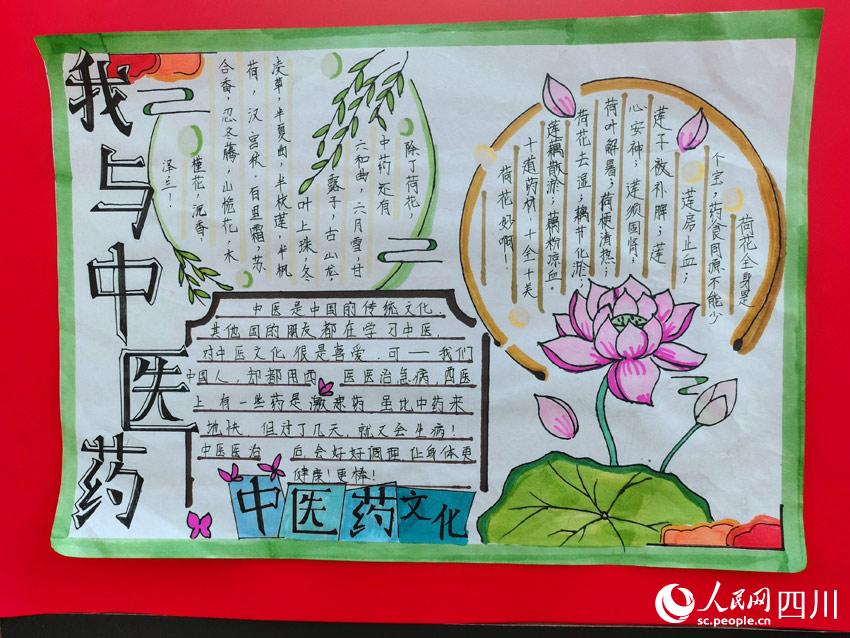 我与中医药
荷花全身是
个宝，药食同源不能少
莲房止血；
莲子被补脾；莲
心安神；莲须固肾；
荷叶解暑；荷梗清热；
荷花去湿；藕节化淤；
莲藕散淤；藕粉凉血。
十道药材，十全十美
荷花妙啊！
除了荷花，
中药还有
六和曲，六月雪，甘
露子，古山龙，
叶上珠，冬
凌草，半夏曲，半枝莲，半枫
荷，汉宫秋，百草霜，苏
合香，忍冬藤，山栀花，木
槿花，沉香，
泽兰！
中医是中国的传统文化，
其他国的朋友都在学习中医，
对中医文化很是喜爱，可——我们
中国人，却都用西 医医治急病，西医
上有一些药是激素药 虽比中药来
地快，但对了几天，就又会生病！
中医医治 后，会好好调理，让身体更
健康！更棒！
中医药文化
人民网 四川
sc.people.cn